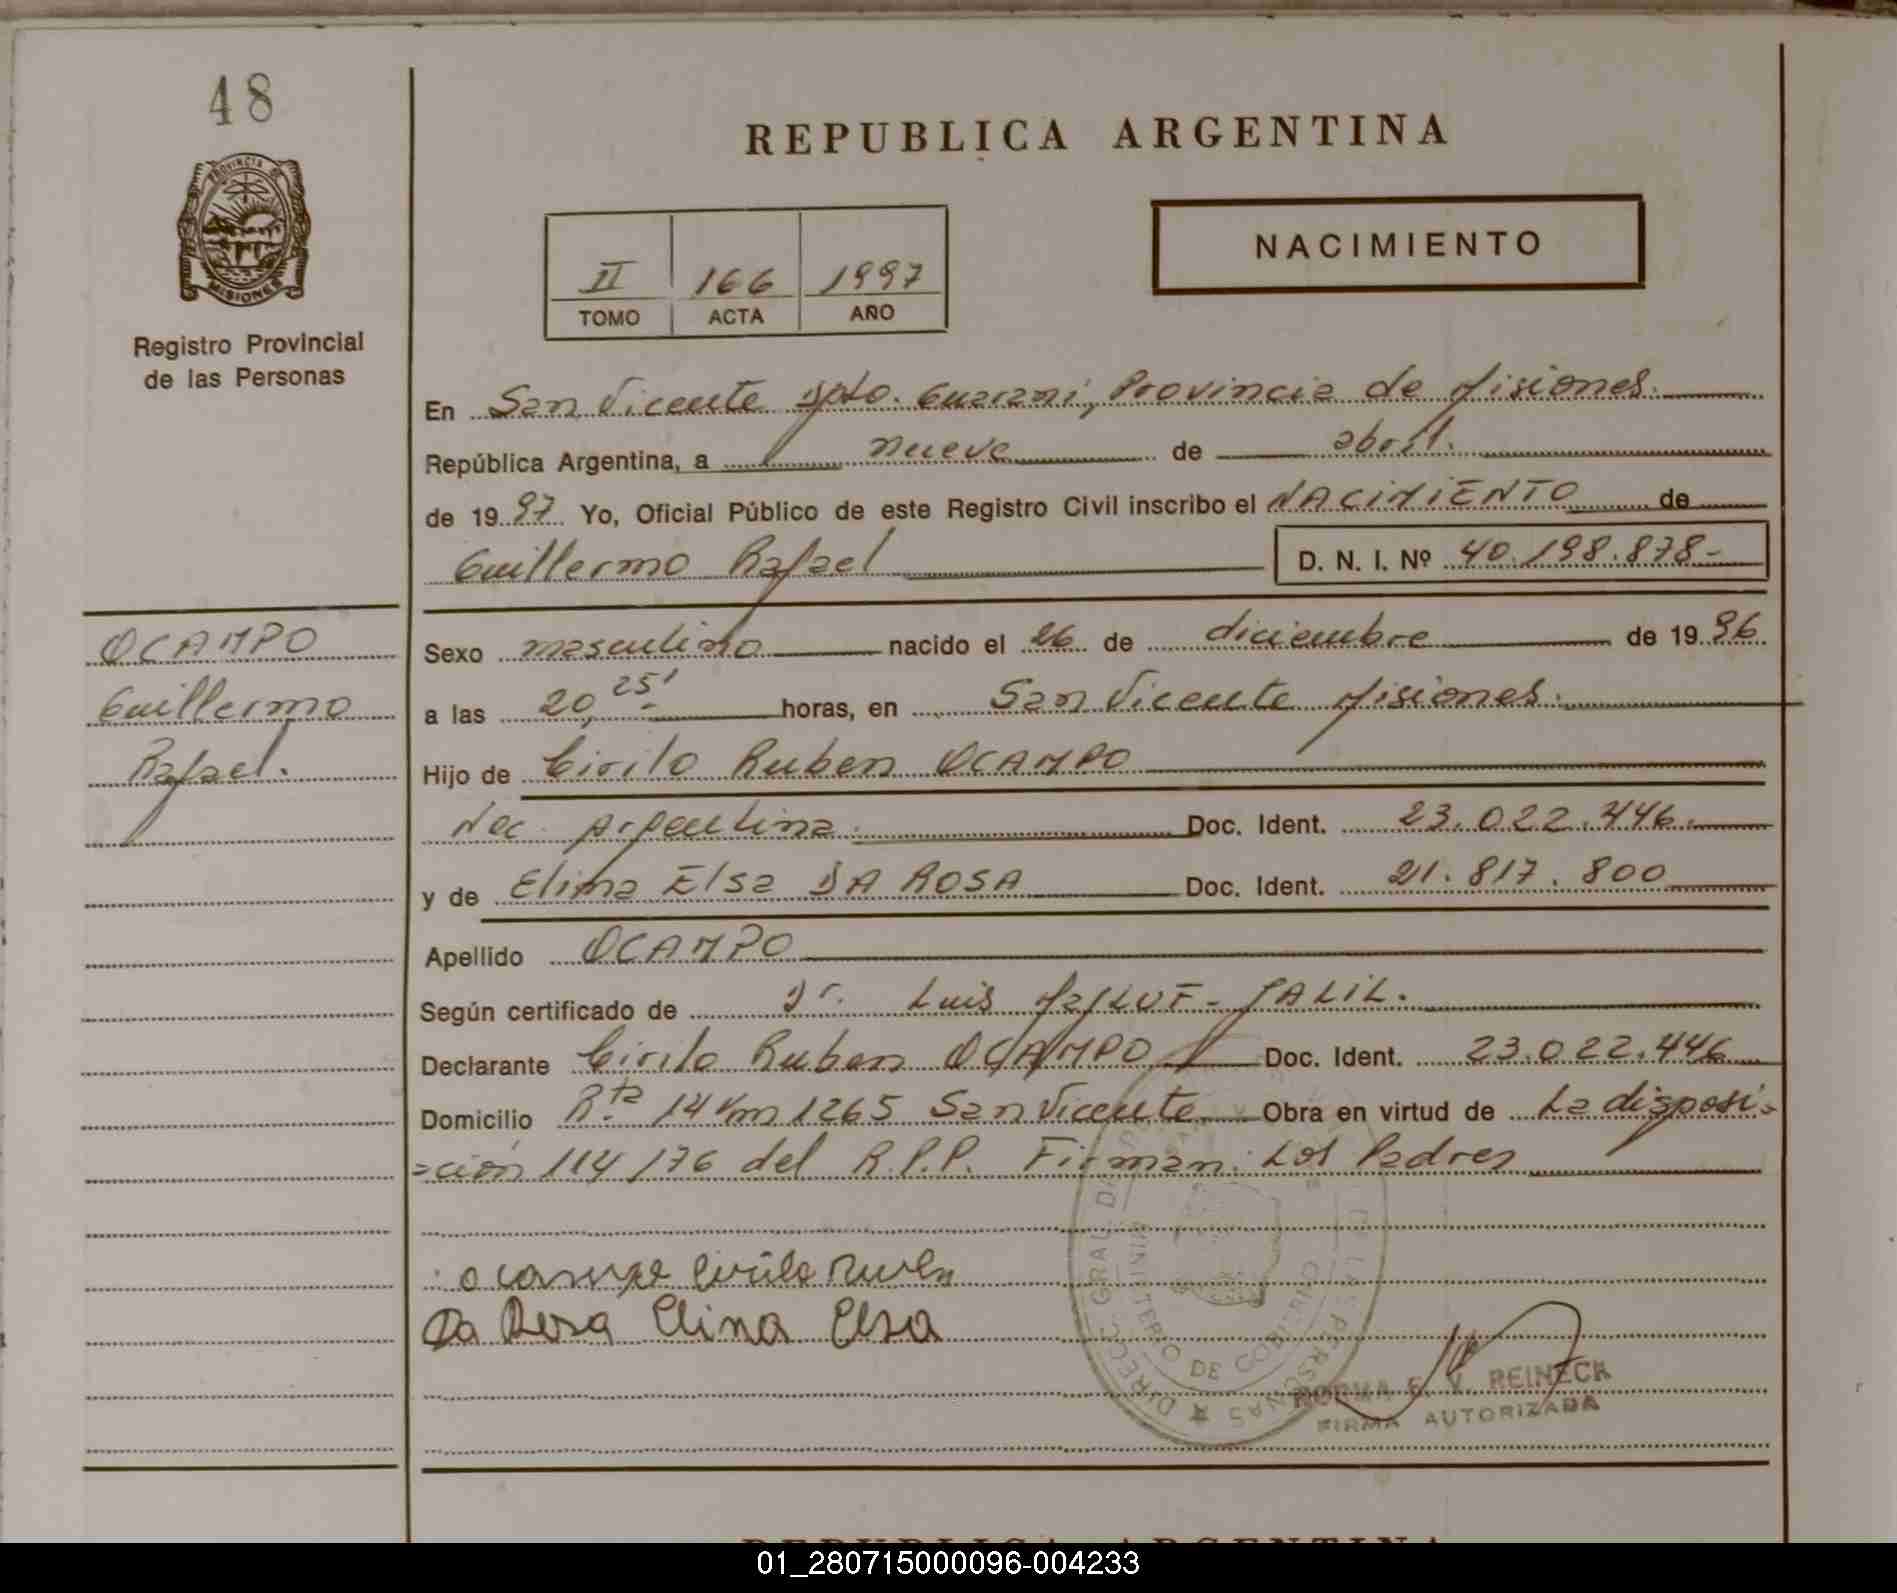 48
PROVINCIA DE
MISIONES
Registro Provincial
de las Personas
REPUBLICA ARGENTINA
NACIMIENTO
II 166 1997
TOMO ACTA AÑO
En San Vicente Dpto. Guaraní, Provincia de Misiones.
República Argentina, a nueve de abril.
de 1997 Yo, Oficial Público de este Registro Civil inscribo el NACIMIENTO de
Guillermo Rafael D. N. I. Nº 40.198.878-
OCAMPO
Guillermo
Rafael.
Sexo masculino nacido el 26 de diciembre de 1996
a las 20,25' horas, en San Vicente Misiones.
Hijo de Cirilo Ruben OCAMPO
Nac. Argentina. Doc. Ident. 23.022.446.
y de Elina Elsa DA ROSA Doc. Ident. 21.817.800
Apellido OCAMPO
Según certificado de Dr. Luis JALIL.
Declarante Cirilo Ruben OCAMPO Doc. Ident. 23.022.446
Domicilio Rta 14 Km 1265 San Vicente Obra en virtud de La disposi-
-ción 114/76 del R.P.P. Firman: Los Padres
ocampo Cirilo Ruben
Da Rosa Elina Elsa
DIRECC. GRAL. DE LAS PERSONAS
MINISTERIO DE GOBIERNO
NORMA E. V. REINECK
FIRMA AUTORIZADA
REPUBLICA ARGENTINA
01_280715000096-004233